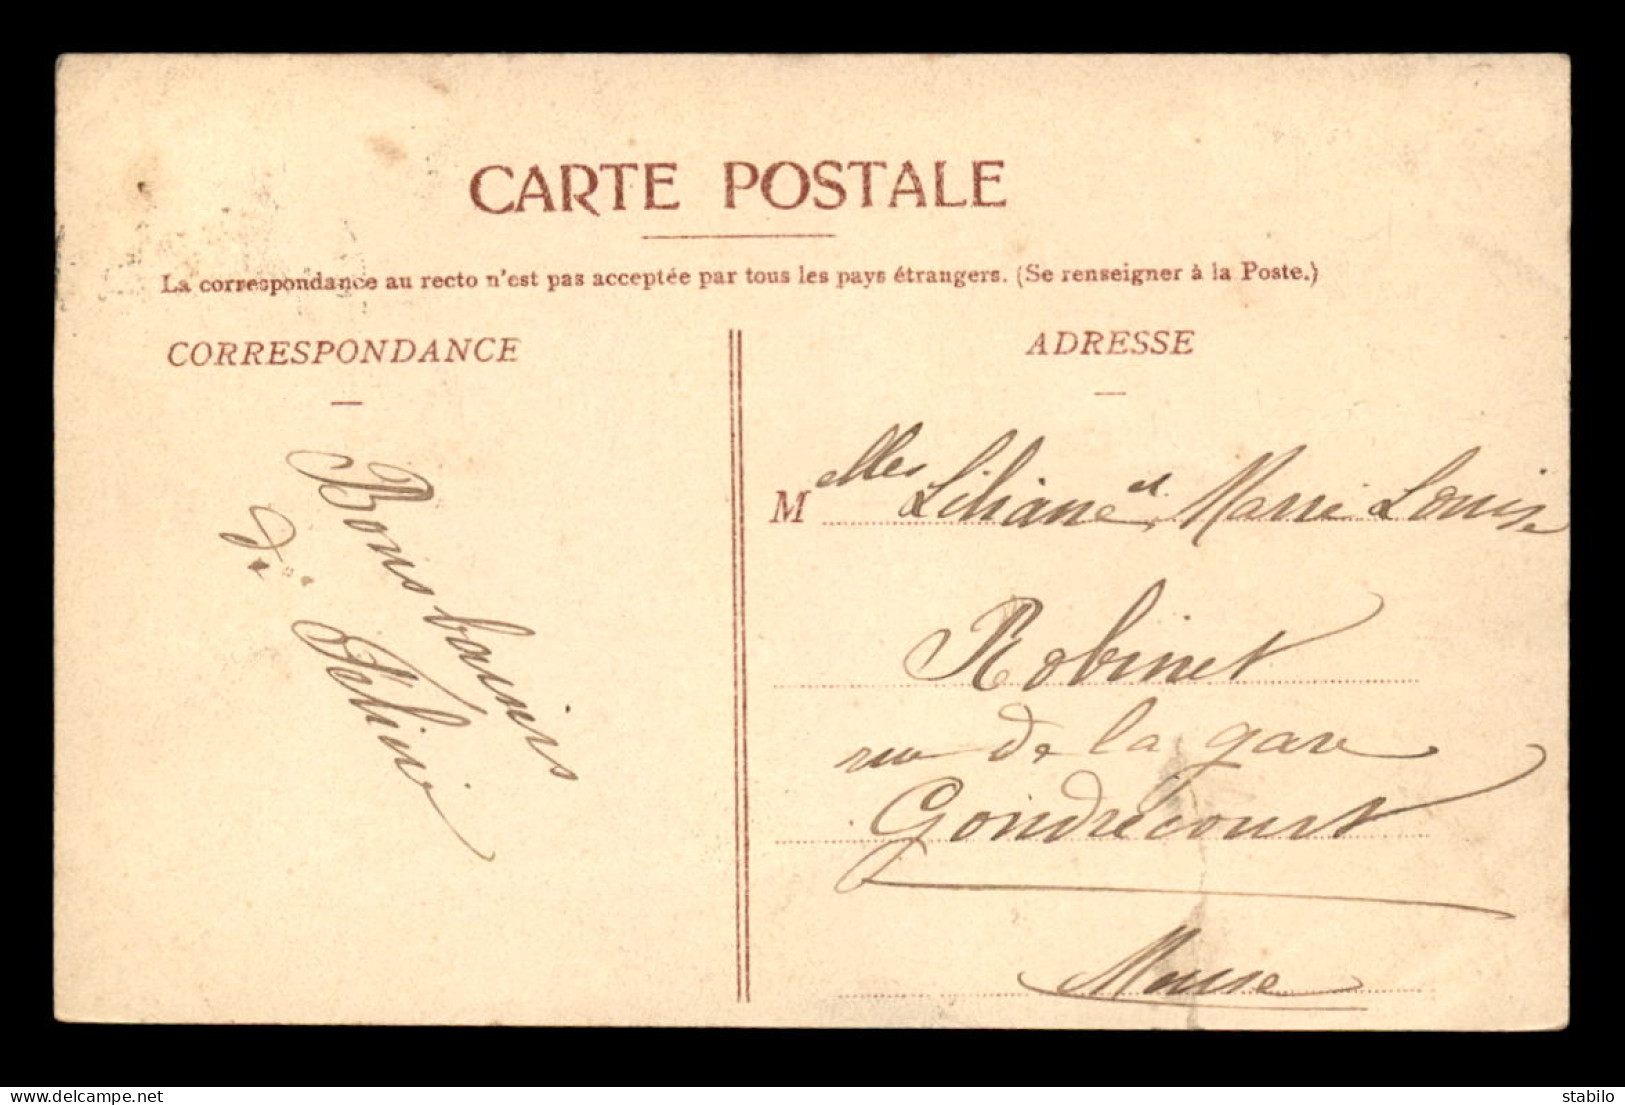 CARTE POSTALE
La correspondance au recto n'est pas acceptée par tous les pays étrangers. (Se renseigner à la Poste.)
CORRESPONDANCE
Bons baisers
de
ADRESSE
Melles Liliane et Marie Louise
Robinet
rue de la gare
Gondrecourt
Meuse
delcampe.net
stabilo